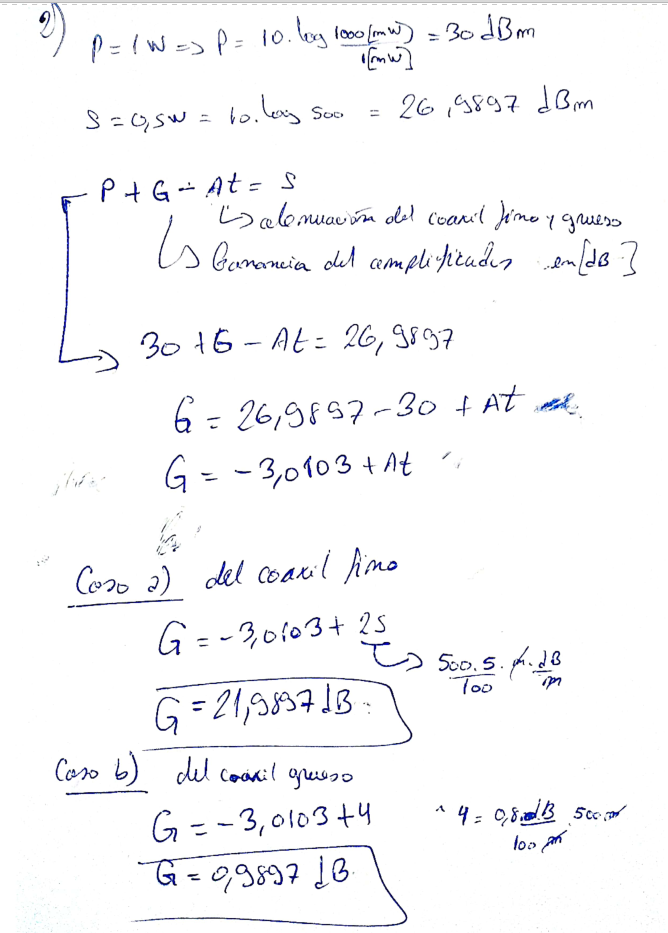 2) P = 1 W => P = 10. log 1000 [mW] / 1 [mW] = 30 dBm
S = 0,5W = 10. log 500 = 26,9897 dBm
P + G - At = S
↳ atenuación del coaxil fino y grueso
↳ Ganancia del amplificador en [dB]
30 + G - At = 26,9897
G = 26,9897 - 30 + At
G = -3,0103 + At
Caso a) del coaxil fino
G = -3,0103 + 25
↳ 500 . 5 . m . dB / 100 m
G = 21,9897 dB
Caso b) del coaxil grueso
G = -3,0103 + 4
4 = 0,8 dB / 100 m . 500 m
G = 0,9897 dB